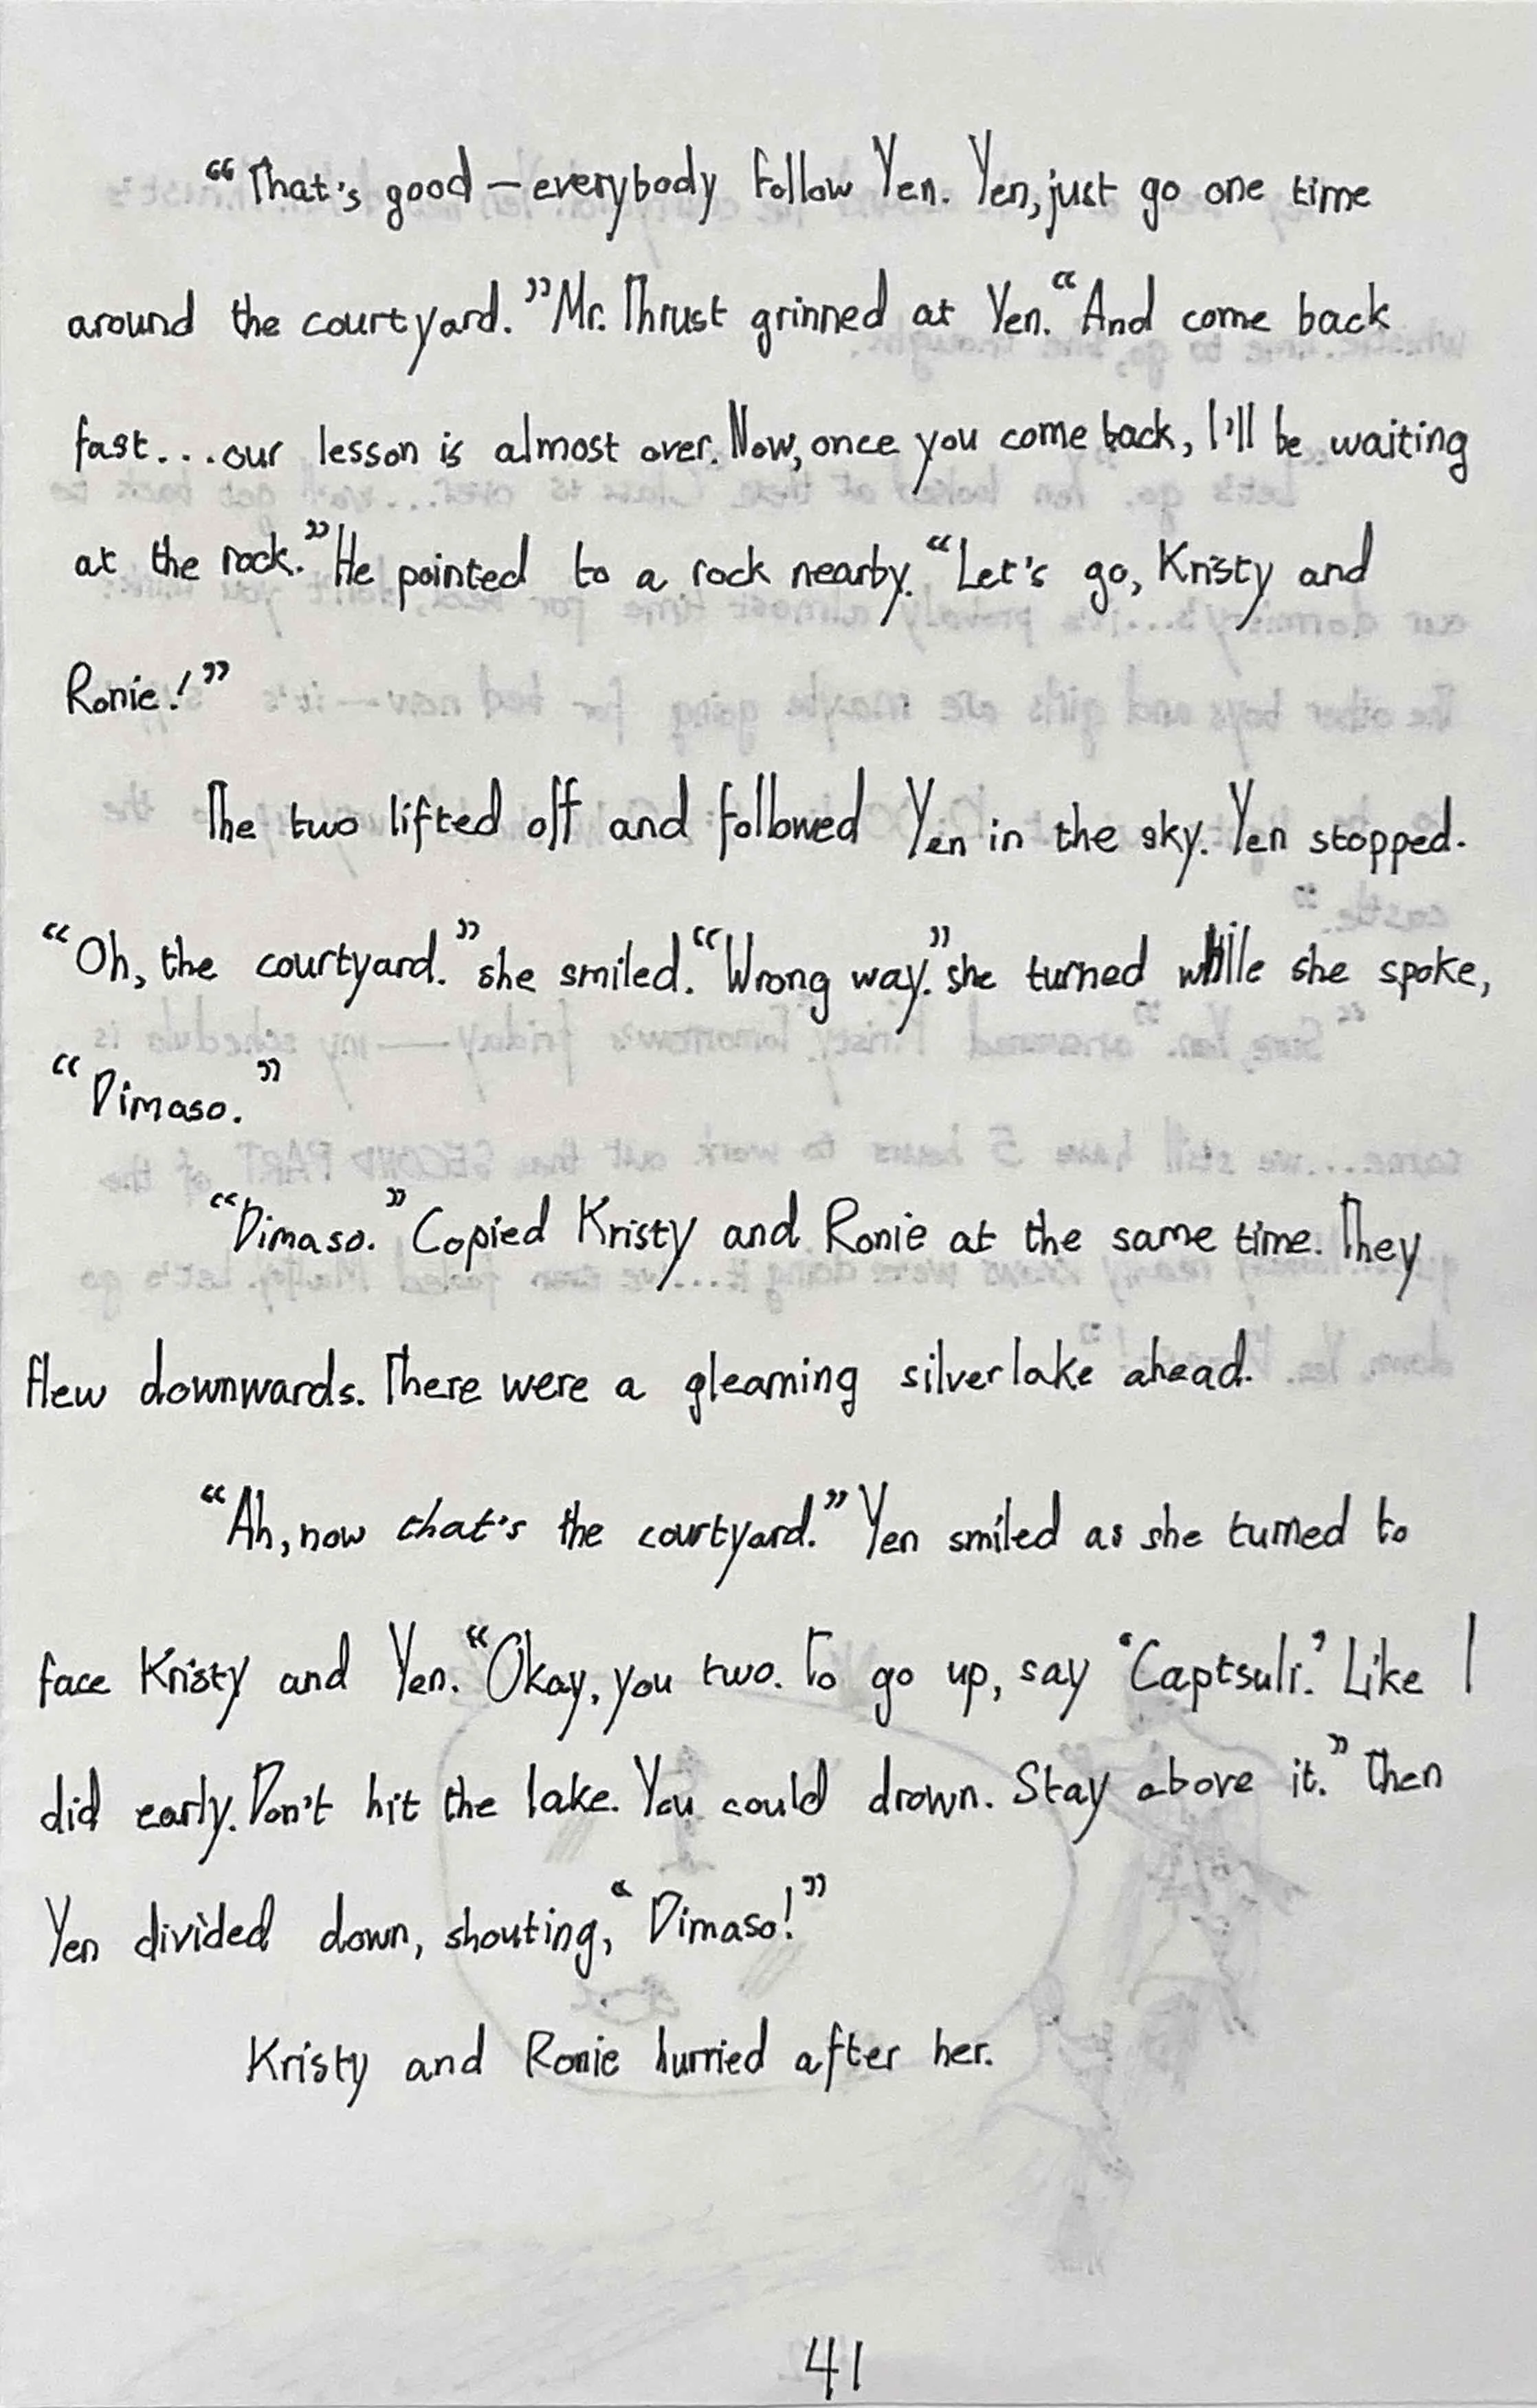 “That's good — everybody follow Yen. Yen, just go one time
around the courtyard.” Mr. Thrust grinned at Yen. “And come back
fast... our lesson is almost over. Now, once you come back, I'll be waiting
at the rock.” He pointed to a rock nearby. “Let's go, Kristy and
Ronie!”
The two lifted off and followed Yen in the sky. Yen stopped.
“Oh, the courtyard.” she smiled. “Wrong way.” she turned while she spoke,
“Dimaso.”
“Dimaso.” Copied Kristy and Ronie at the same time. They
flew downwards. There were a gleaming silver lake ahead.
“Ah, now that's the courtyard.” Yen smiled as she turned to
face Kristy and Yen. “Okay, you two. To go up, say ‘Captsuli.’ Like I
did early. Don't hit the lake. You could drown. Stay above it.” Then
Yen divided down, shouting, “Dimaso!”
Kristy and Ronie hurried after her.
41